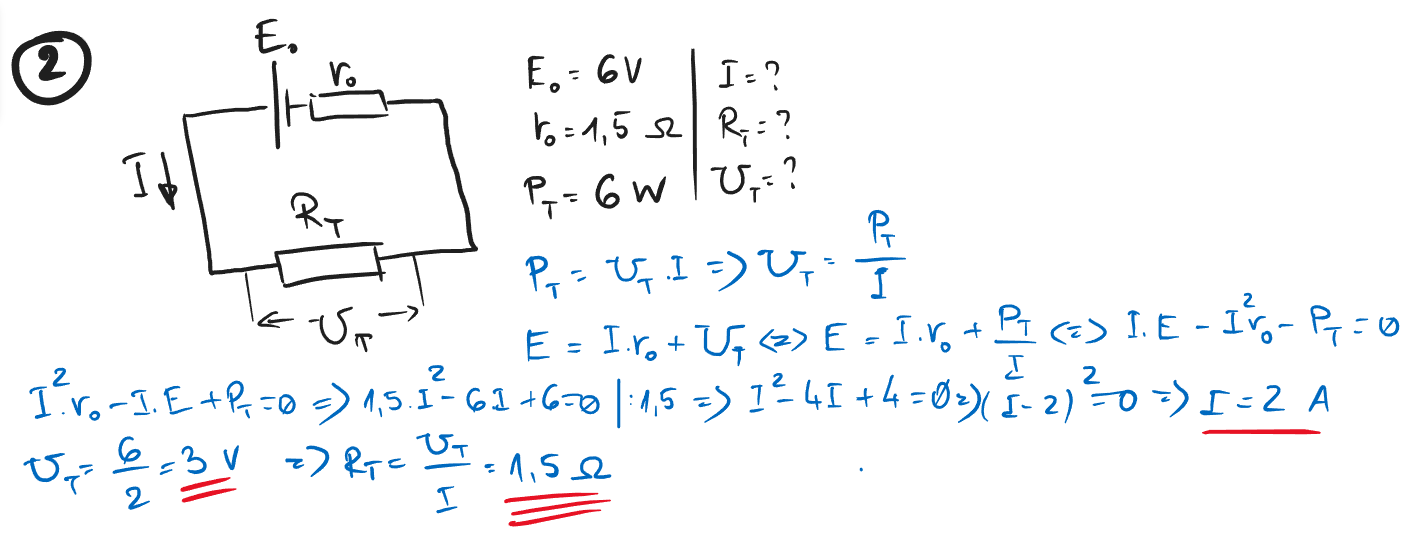 2
E₀
r₀
I
R_T
U_T
E₀ = 6V | I = ?
r₀ = 1,5 Ω | R_T = ?
P_T = 6 W | U_T = ?
P_T = U_T . I => U_T = P_T / I
E = I.r₀ + U_T <=> E = I.r₀ + P_T / I <=> I.E - I²r₀ - P_T = 0
I².r₀ - I.E + P_T = 0 => 1,5.I² - 6I + 6 = 0 |:1,5 => I² - 4I + 4 = 0 => (I - 2)² = 0 => I = 2 A
U_T = 6 / 2 = 3 V => R_T = U_T / I = 1,5 Ω